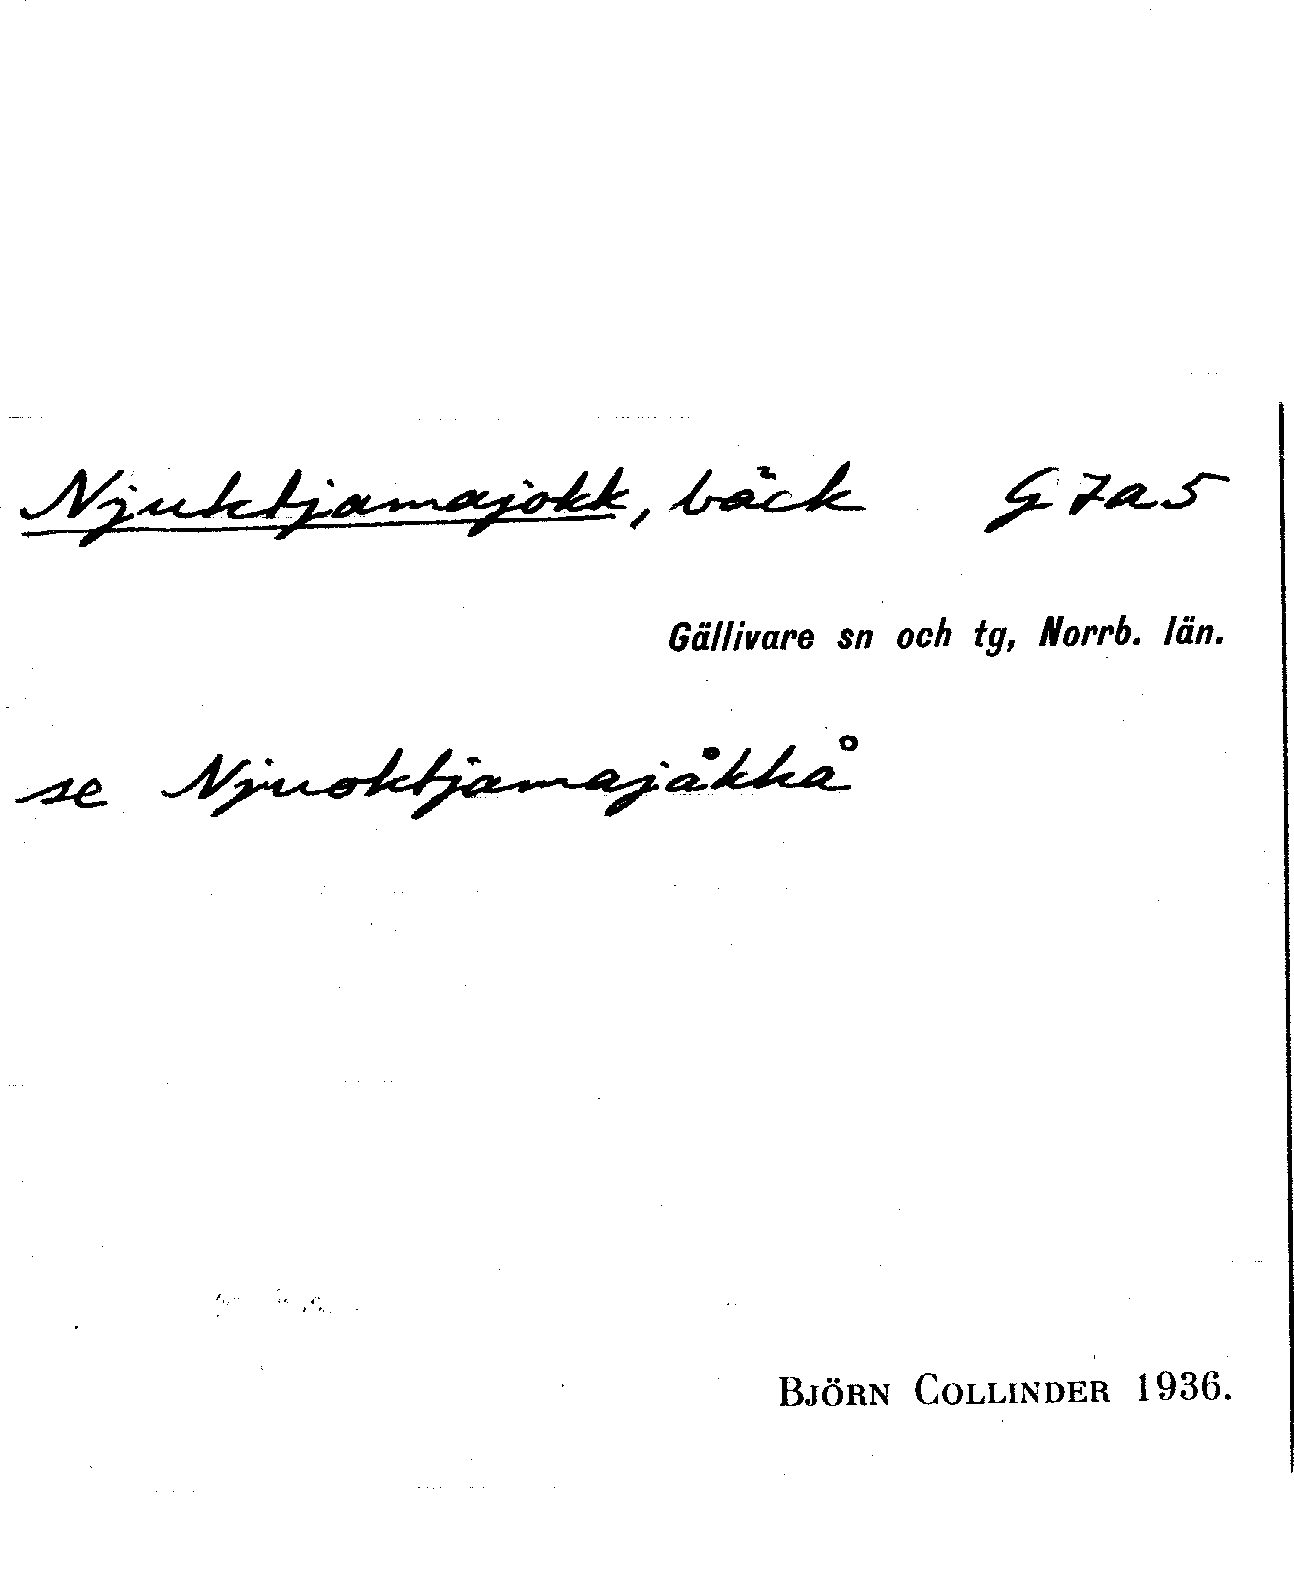 Njuktjamajokk, bäck G7a5
Gällivare sn och tg, Norrb. län.
se Njuoktjamajåkkå
BJÖRN COLLINDER 1936.